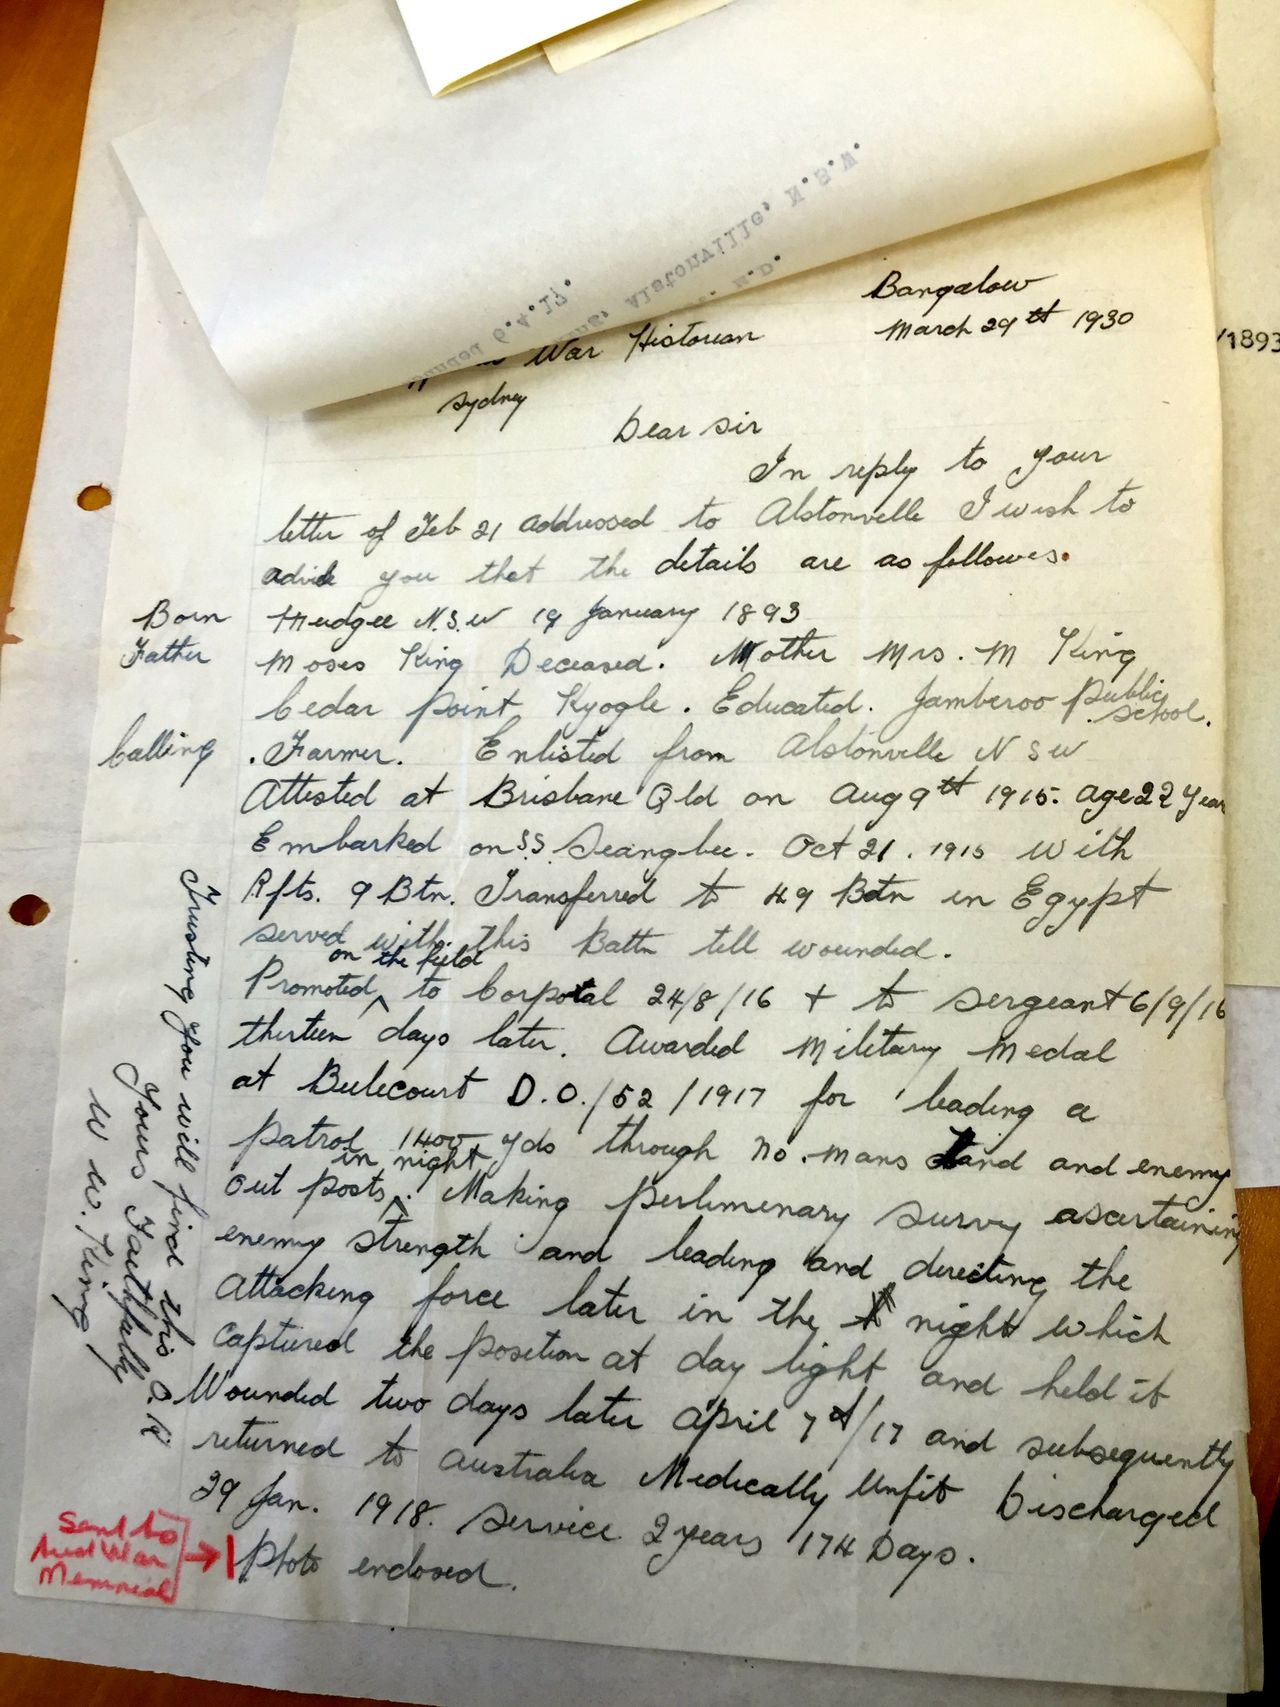 Bangalow
March 29th 1930
War Historian
Sydney
Dear Sir
In reply to your
letter of Feb 21 addressed to Alstonville I wish to
advise you that the details are as follows.
Born Mudgee N.S.W 19 January 1893
Father Moses King Deceased. Mother Mrs. M King
Cedar Point Kyogle. Educated. Jamberoo Public School.
Calling . Farmer. Enlisted from Alstonville N S W
Attested at Brisbane Qld on Aug 9th 1915. age 22 Year
Embarked on S.S. Seangbee. Oct 21. 1915 with
Rfts. 9 Btn. Transferred to 49 Batn in Egypt
served with this Battn till wounded.
Promoted on the field to Corporal 24/8/16 + to Sergeant 6/9/16
thirteen days later. Awarded Military Medal
at Bulecourt D.O./52/1917 for leading a
patrol 1400 yds through No. mans Land and enemy
out posts in night. Making perlimenary survey ascertaining
enemy strength and leading and directing the
attacking force later in the night which
captured the position at day light and held it
Wounded two days later April 7th/17 and subsequently
returned to Australia Medically Unfit Discharged
29 Jan. 1918. Service 2 years 174 Days.
Photo enclosed.
Trusting you will find this O.K
Yours Faithfully
W W. King
Sent to
Aust War
Memorial
N.S.W.
Alstonville,
9.4.17.
/1893